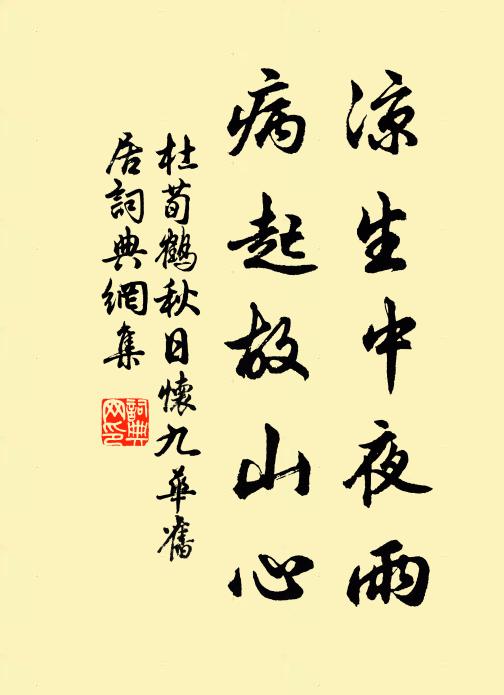 涼生中夜雨
病起故山心
杜荀鶴秋日懷九華舊
居詞典網集
詞典
网印